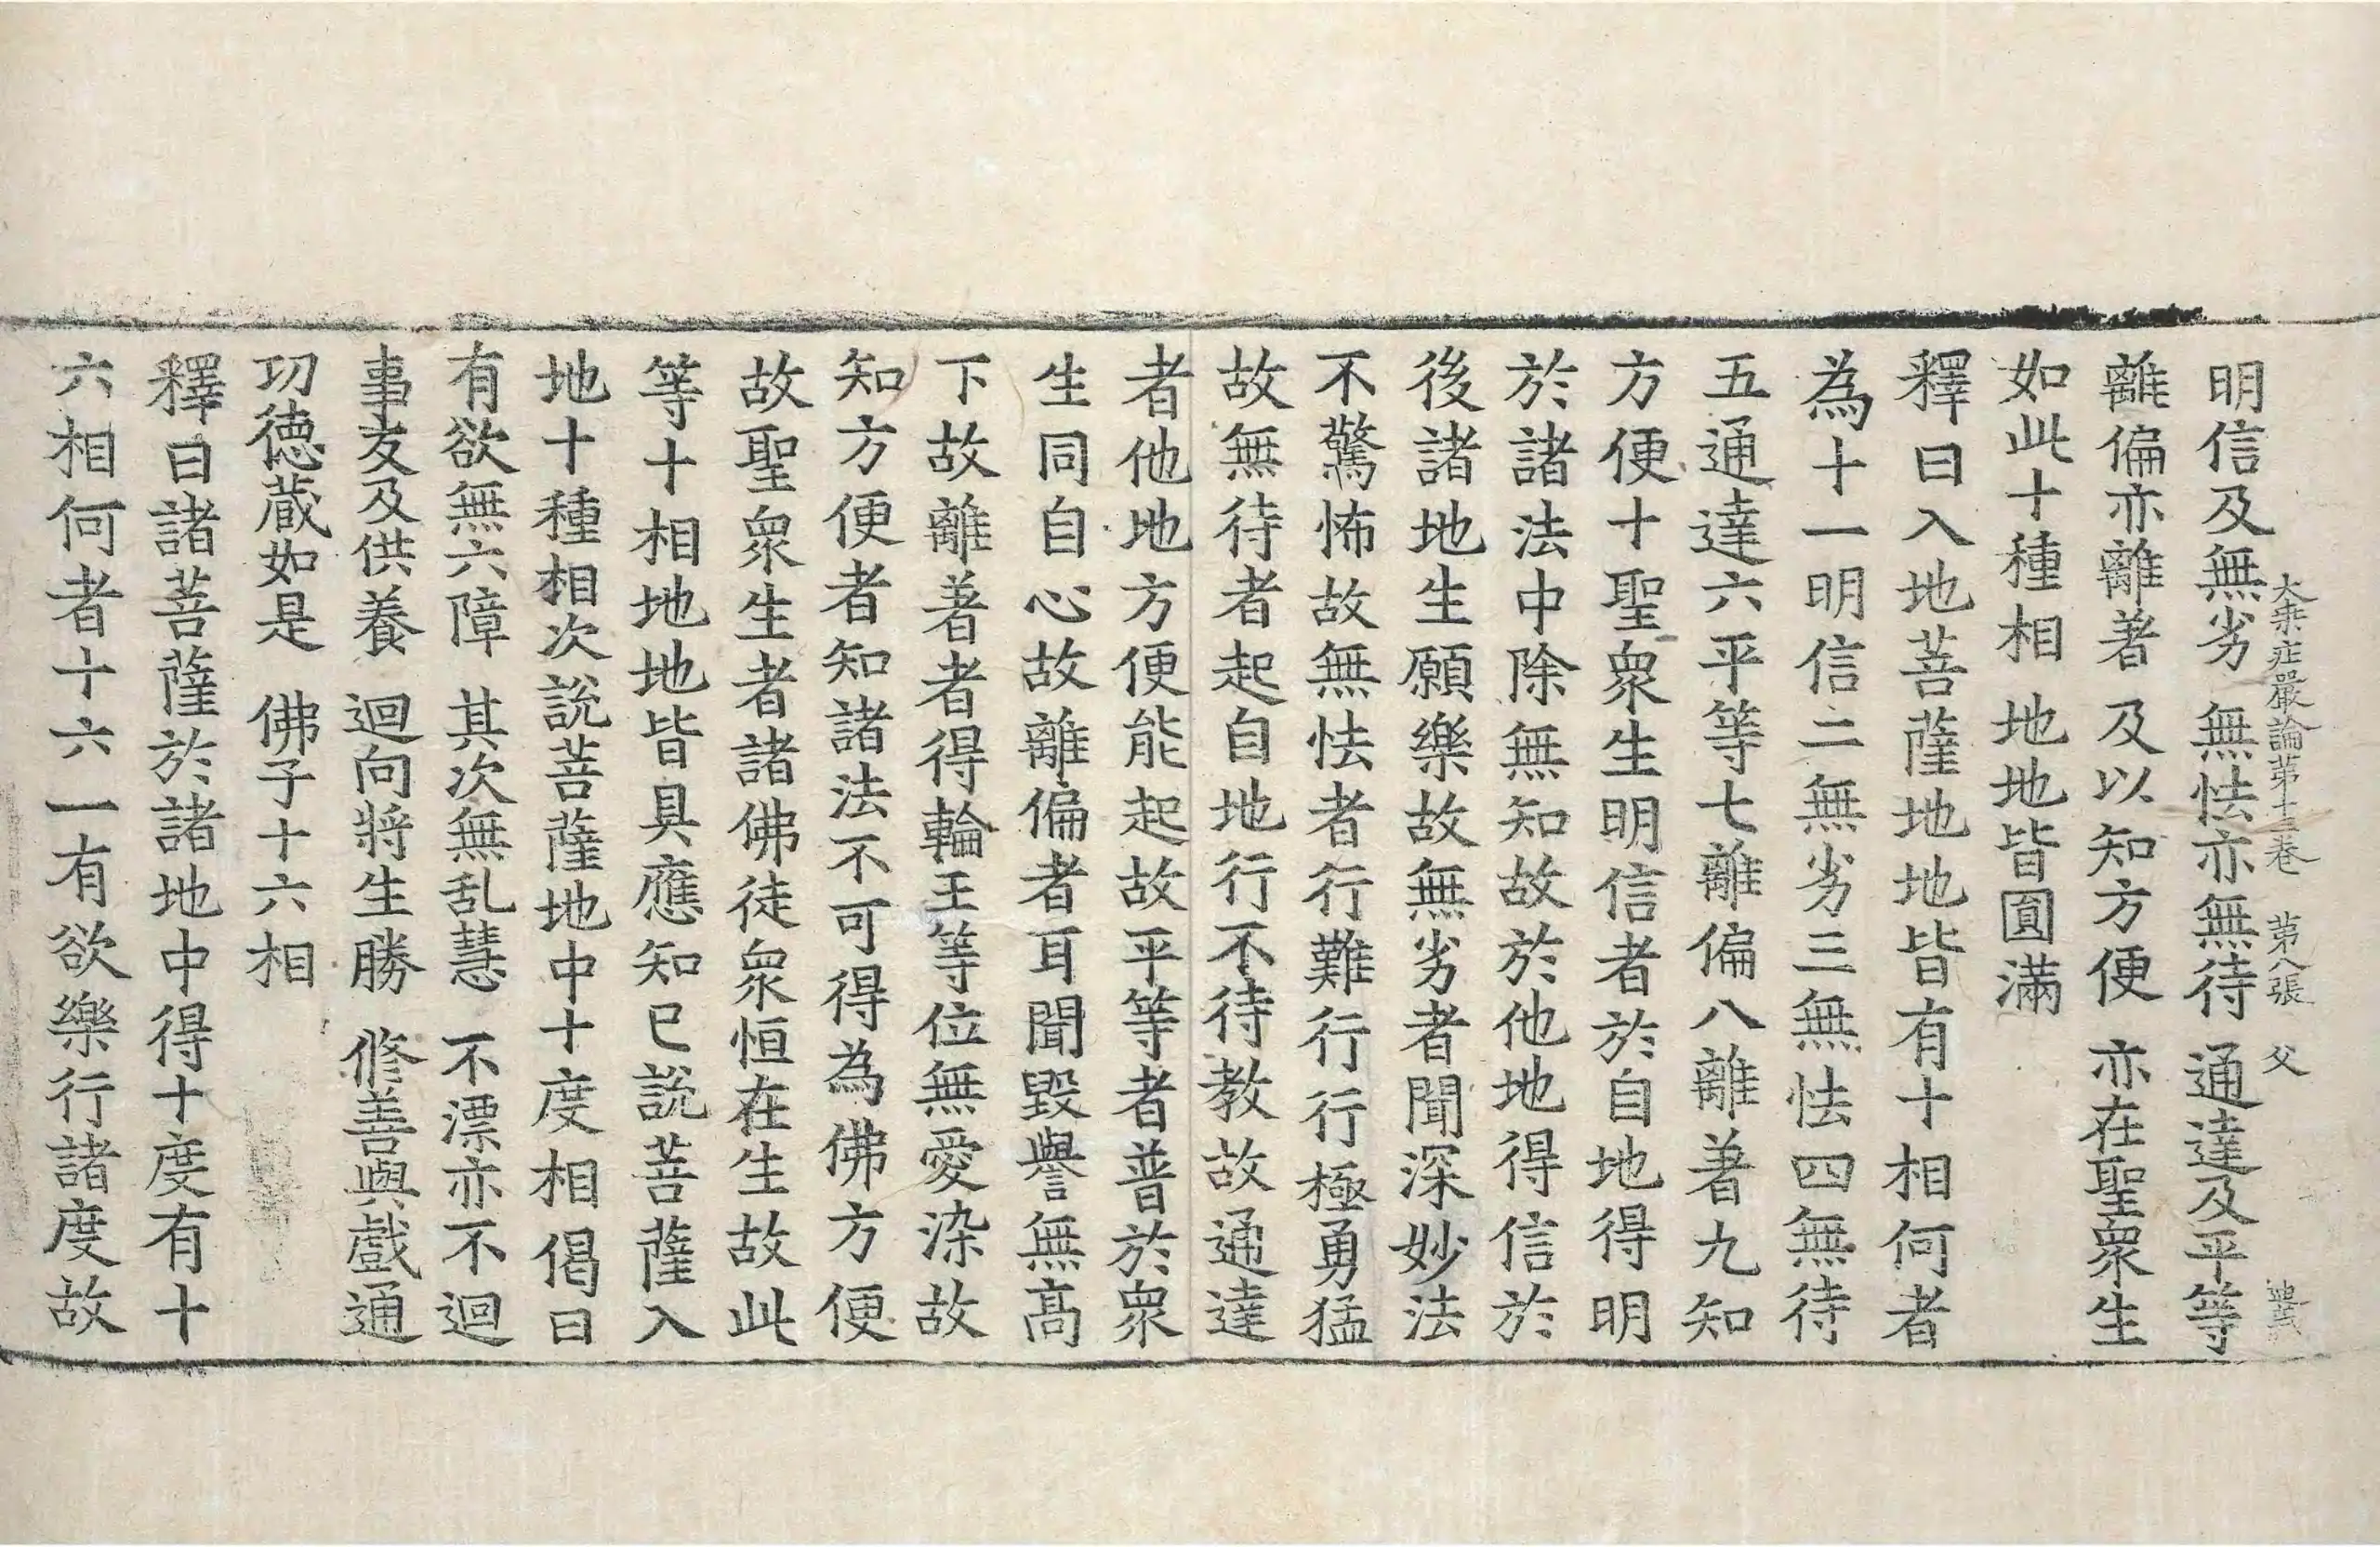 大乘庄嚴論第十三卷 第八張 父
明信及無劣 無怯亦無待 通達及平等
離偏亦離著 及以知方便 亦在聖衆生
如此十種相 地地皆圎滿
釋曰入地菩薩地地皆有十相何者
為十一明信二無劣三無怯四無待
五通達六平等七離偏八離著九知
方便十聖衆生明信者於自地得明
於諸法中除無知故於他地得信於
後諸地生願樂故無劣者聞深妙法
不驚怖故無怯者行難行行極勇猛
故無待者起自地行不待教故通達
者他地方便能起故平等者普於衆
生同自心故離偏者耳聞毀譽無高
下故離著者得輪王等位無愛染故
知方便者知諸法不可得為佛方便
故聖衆生者諸佛徒衆恒在生故此
等十相地地皆具應知已説菩薩入
地十種相次説菩薩地中十度相偈曰
有欲無六障 其次無乱慧 不漂亦不迴
事友及供養 迴向將生勝 修善與戲通
功徳蔵如是 佛子十六相
釋曰諸菩薩於諸地中得十度有十
六相何者十六一有欲樂行諸度故